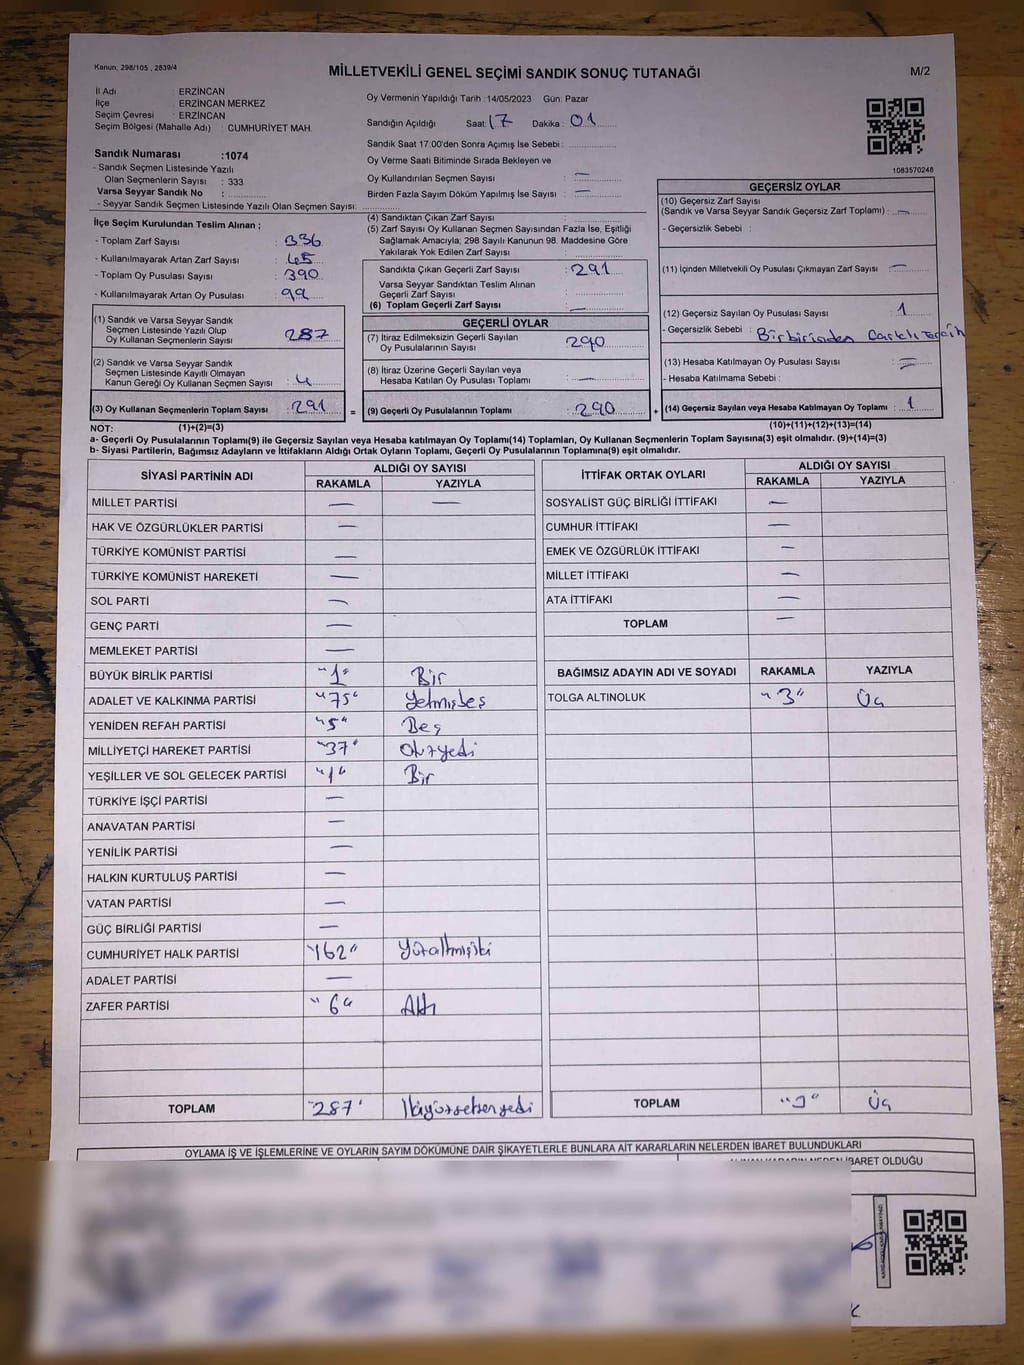 Kanun; 298/105 , 2839/4
MİLLETVEKİLİ GENEL SEÇİMİ SANDIK SONUÇ TUTANAĞI
M/2
İl Adı : ERZİNCAN
İlçe : ERZİNCAN MERKEZ
Seçim Çevresi : ERZİNCAN
Seçim Bölgesi (Mahalle Adı) CUMHURİYET MAH.
Oy Vermenin Yapıldığı Tarih :14/05/2023 Gün: Pazar
Sandığın Açıldığı Saat: 17 Dakika: 01
Sandık Saat 17:00'den Sonra Açımış İse Sebebi:
Oy Verme Saati Bitiminde Sırada Bekleyen ve
Oy Kullandırılan Seçmen Sayısı : —
Birden Fazla Sayım Döküm Yapılmış İse Sayısı : —
1083570248
Sandık Numarası :1074
- Sandık Seçmen Listesinde Yazılı
Olan Seçmenlerin Sayısı : 333
Varsa Seyyar Sandık No :
- Seyyar Sandık Seçmen Listesinde Yazılı Olan Seçmen Sayısı:
İlçe Seçim Kurulundan Teslim Alınan ;
- Toplam Zarf Sayısı : 336
- Kullanılmayarak Artan Zarf Sayısı : 45
- Toplam Oy Pusulası Sayısı : 390
- Kullanılmayarak Artan Oy Pusulası : 99
(1) Sandık ve Varsa Seyyar Sandık
Seçmen Listesinde Yazılı Olup
Oy Kullanan Seçmenlerin Sayısı : 287
(2) Sandık ve Varsa Seyyar Sandık
Seçmen Listesinde Kayıtlı Olmayan
Kanun Gereği Oy Kullanan Seçmen Sayısı : 4
(3) Oy Kullanan Seçmenlerin Toplam Sayısı : 291
(4) Sandıktan Çıkan Zarf Sayısı :
(5) Zarf Sayısı Oy Kullanan Seçmen Sayısından Fazla İse, Eşitliği
Sağlamak Amacıyla; 298 Sayılı Kanunun 98. Maddesine Göre
Yakılarak Yok Edilen Zarf Sayısı :
Sandıkta Çıkan Geçerli Zarf Sayısı : 291
Varsa Seyyar Sandıktan Teslim Alınan
Geçerli Zarf Sayısı :
(6) Toplam Geçerli Zarf Sayısı : —
GEÇERLİ OYLAR
(7) İtiraz Edilmeksizin Geçerli Sayılan
Oy Pusulasının Sayısı : 290
(8) İtiraz Üzerine Geçerli Sayılan veya
Hesaba Katılan Oy Pusulası Toplamı : —
= (9) Geçerli Oy Pusulalarının Toplamı : 290
GEÇERSİZ OYLAR
(10) Geçersiz Zarf Sayısı
(Sandık ve Varsa Seyyar Sandık Geçersiz Zarf Toplamı) : —
- Geçersizlik Sebebi :
(11) İçinden Milletvekili Oy Pusulası Çıkmayan Zarf Sayısı : —
(12) Geçersiz Sayılan Oy Pusulası Sayısı : 1
- Geçersizlik Sebebi : Birbirinden
(13) Hesaba Katılmayan Oy Pusulası Sayısı : —
- Hesaba Katılmama Sebebi :
+ (14) Geçersiz Sayılan veya Hesaba Katılmayan Oy Toplamı : 1
NOT: (1)+(2)=(3)
(10)+(11)+(12)+(13)=(14)
a- Geçerli Oy Pusulalarının Toplamı(9) ile Geçersiz Sayılan veya Hesaba katılmayan Oy Toplamı(14) Toplamları, Oy Kullanan Seçmenlerin Toplam Sayısına(3) eşit olmalıdır. (9)+(14)=(3)
b- Siyasi Partilerin, Bağımsız Adayların ve İttifakların Aldığı Ortak Oyların Toplamı, Geçerli Oy Pusulalarının Toplamına(9) eşit olmalıdır.
SİYASİ PARTİNİN ADI ALDIĞI OY SAYISI
RAKAMLA YAZIYLA
MİLLET PARTİSİ — —
HAK VE ÖZGÜRLÜKLER PARTİSİ —
TÜRKİYE KOMÜNİST PARTİSİ —
TÜRKİYE KOMÜNİST HAREKETİ —
SOL PARTİ —
GENÇ PARTİ —
MEMLEKET PARTİSİ —
BÜYÜK BİRLİK PARTİSİ "1" Bir
ADALET VE KALKINMA PARTİSİ "75" Yetmişbeş
YENİDEN REFAH PARTİSİ "5" Beş
MİLLİYETÇİ HAREKET PARTİSİ "37" Otuzyedi
YEŞİLLER VE SOL GELECEK PARTİSİ "1" Bir
TÜRKİYE İŞÇİ PARTİSİ —
ANAVATAN PARTİSİ —
YENİLİK PARTİSİ —
HALKIN KURTULUŞ PARTİSİ —
VATAN PARTİSİ —
GÜÇ BİRLİĞİ PARTİSİ —
CUMHURİYET HALK PARTİSİ "162" Yüzaltmışiki
ADALET PARTİSİ —
ZAFER PARTİSİ "6" Altı
TOPLAM "287" İkiyüzseksenyedi
İTTİFAK ORTAK OYLARI ALDIĞI OY SAYISI
RAKAMLA YAZIYLA
SOSYALİST GÜÇ BİRLİĞİ İTTİFAKI —
CUMHUR İTTİFAKI —
EMEK VE ÖZGÜRLÜK İTTİFAKI —
MİLLET İTTİFAKI —
ATA İTTİFAKI —
TOPLAM —
BAĞIMSIZ ADAYIN ADI VE SOYADI RAKAMLA YAZIYLA
TOLGA ALTINOLUK "3" Üç
TOPLAM "3" Üç
OYLAMA İŞ VE İŞLEMLERİNE VE OYLARIN SAYIM DÖKÜMÜNE DAİR ŞİKAYETLERLE BUNLARA AİT KARARLARIN NELERDEN İBARET BULUNDUKLARI
İBARET OLDUĞU